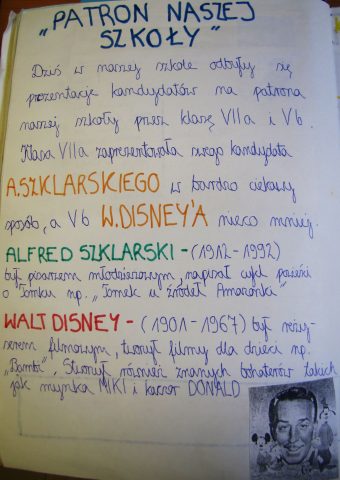 "PATRON NASZEJ
SZKOŁY"
Dziś w naszej szkole odbyły się
prezentacje kandydatów na patrona
naszej szkoły przez klasę VIIa i Vb.
Klasa VIIa zaprezentowała swego kandydata
A.SZKLARSKIEGO w bardzo ciekawy
sposób, a Vb W.DISNEY'A nieco mniej.
ALFRED SZKLARSKI - (1912-1992)
był pisarzem młodzieżowym, napisał cykl powieści
o Tomku np. "Tomek u źródeł Amazonki"
WALT DISNEY - (1901-1967) był reży-
serem filmowym, tworzył filmy dla dzieci np.
"Bambi". Stworzył również znanych bohaterów takich
jak myszka MIKI i kaczor DONALD